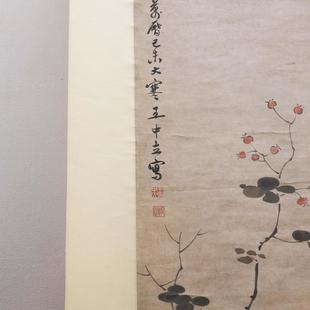 萬曆己未大寒王中立寫